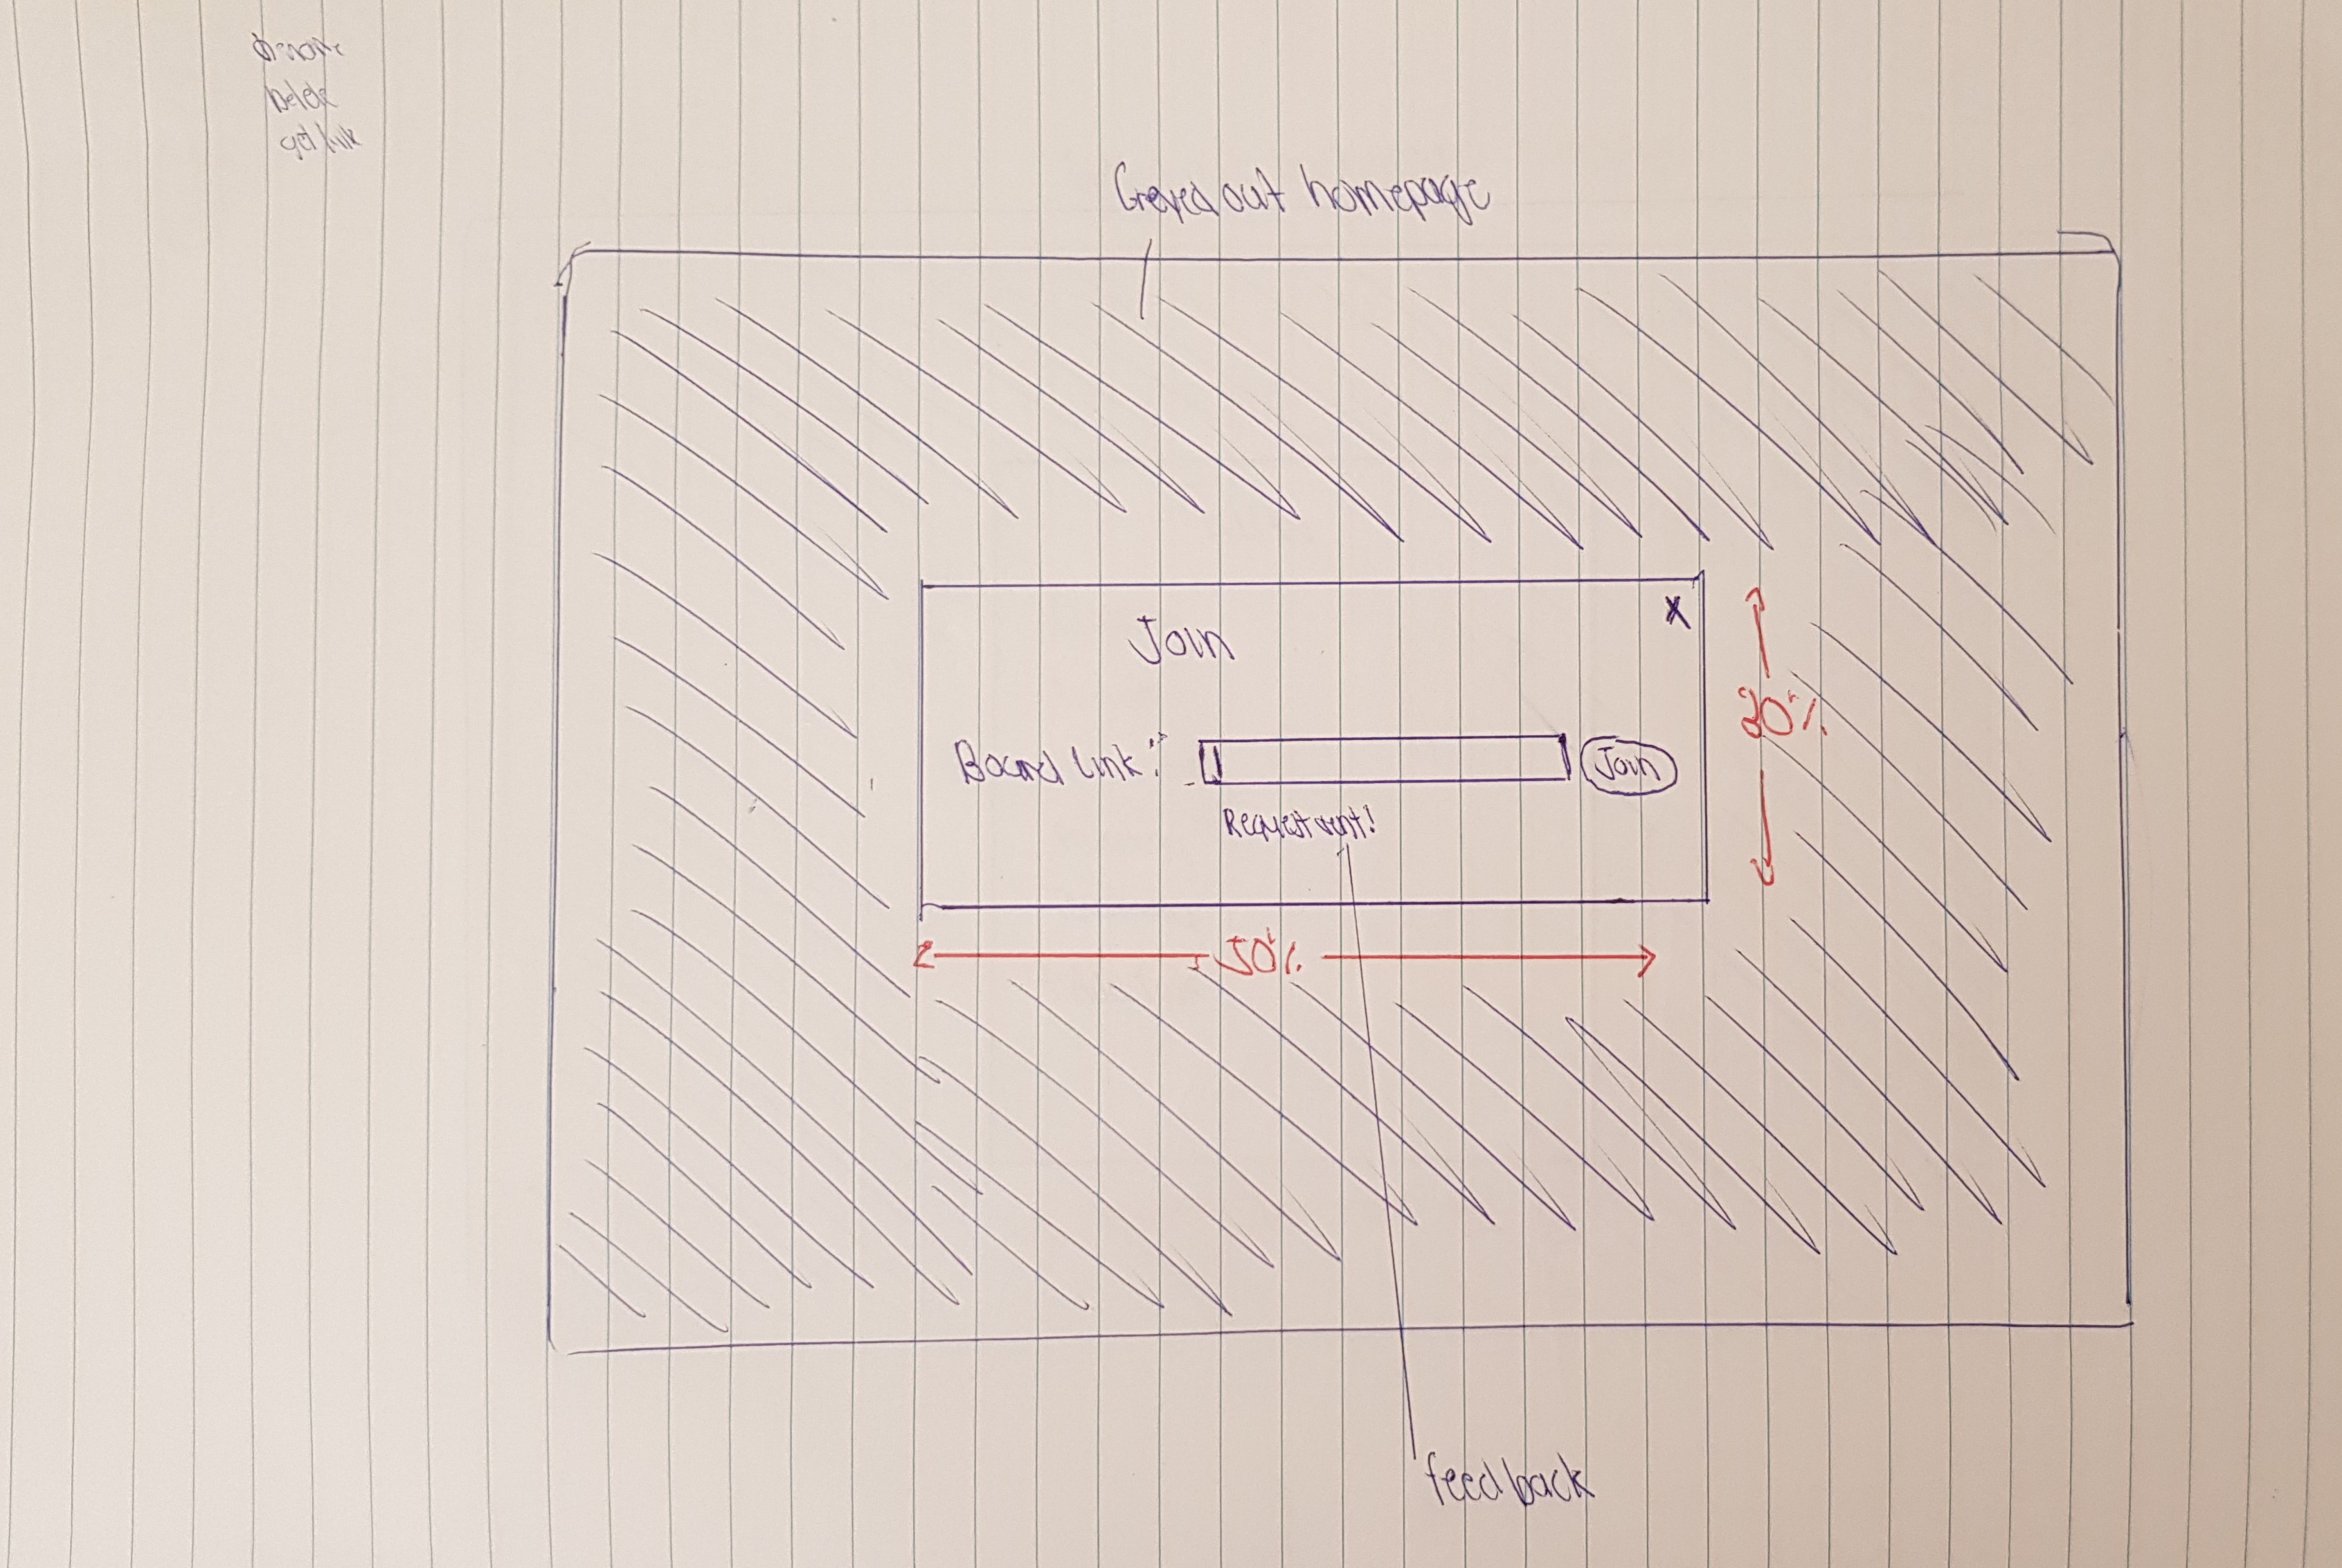 Delete
get link
Greyed out homepage
X
Join
Board Link:
Join
Request sent!
30%
50%
feedback